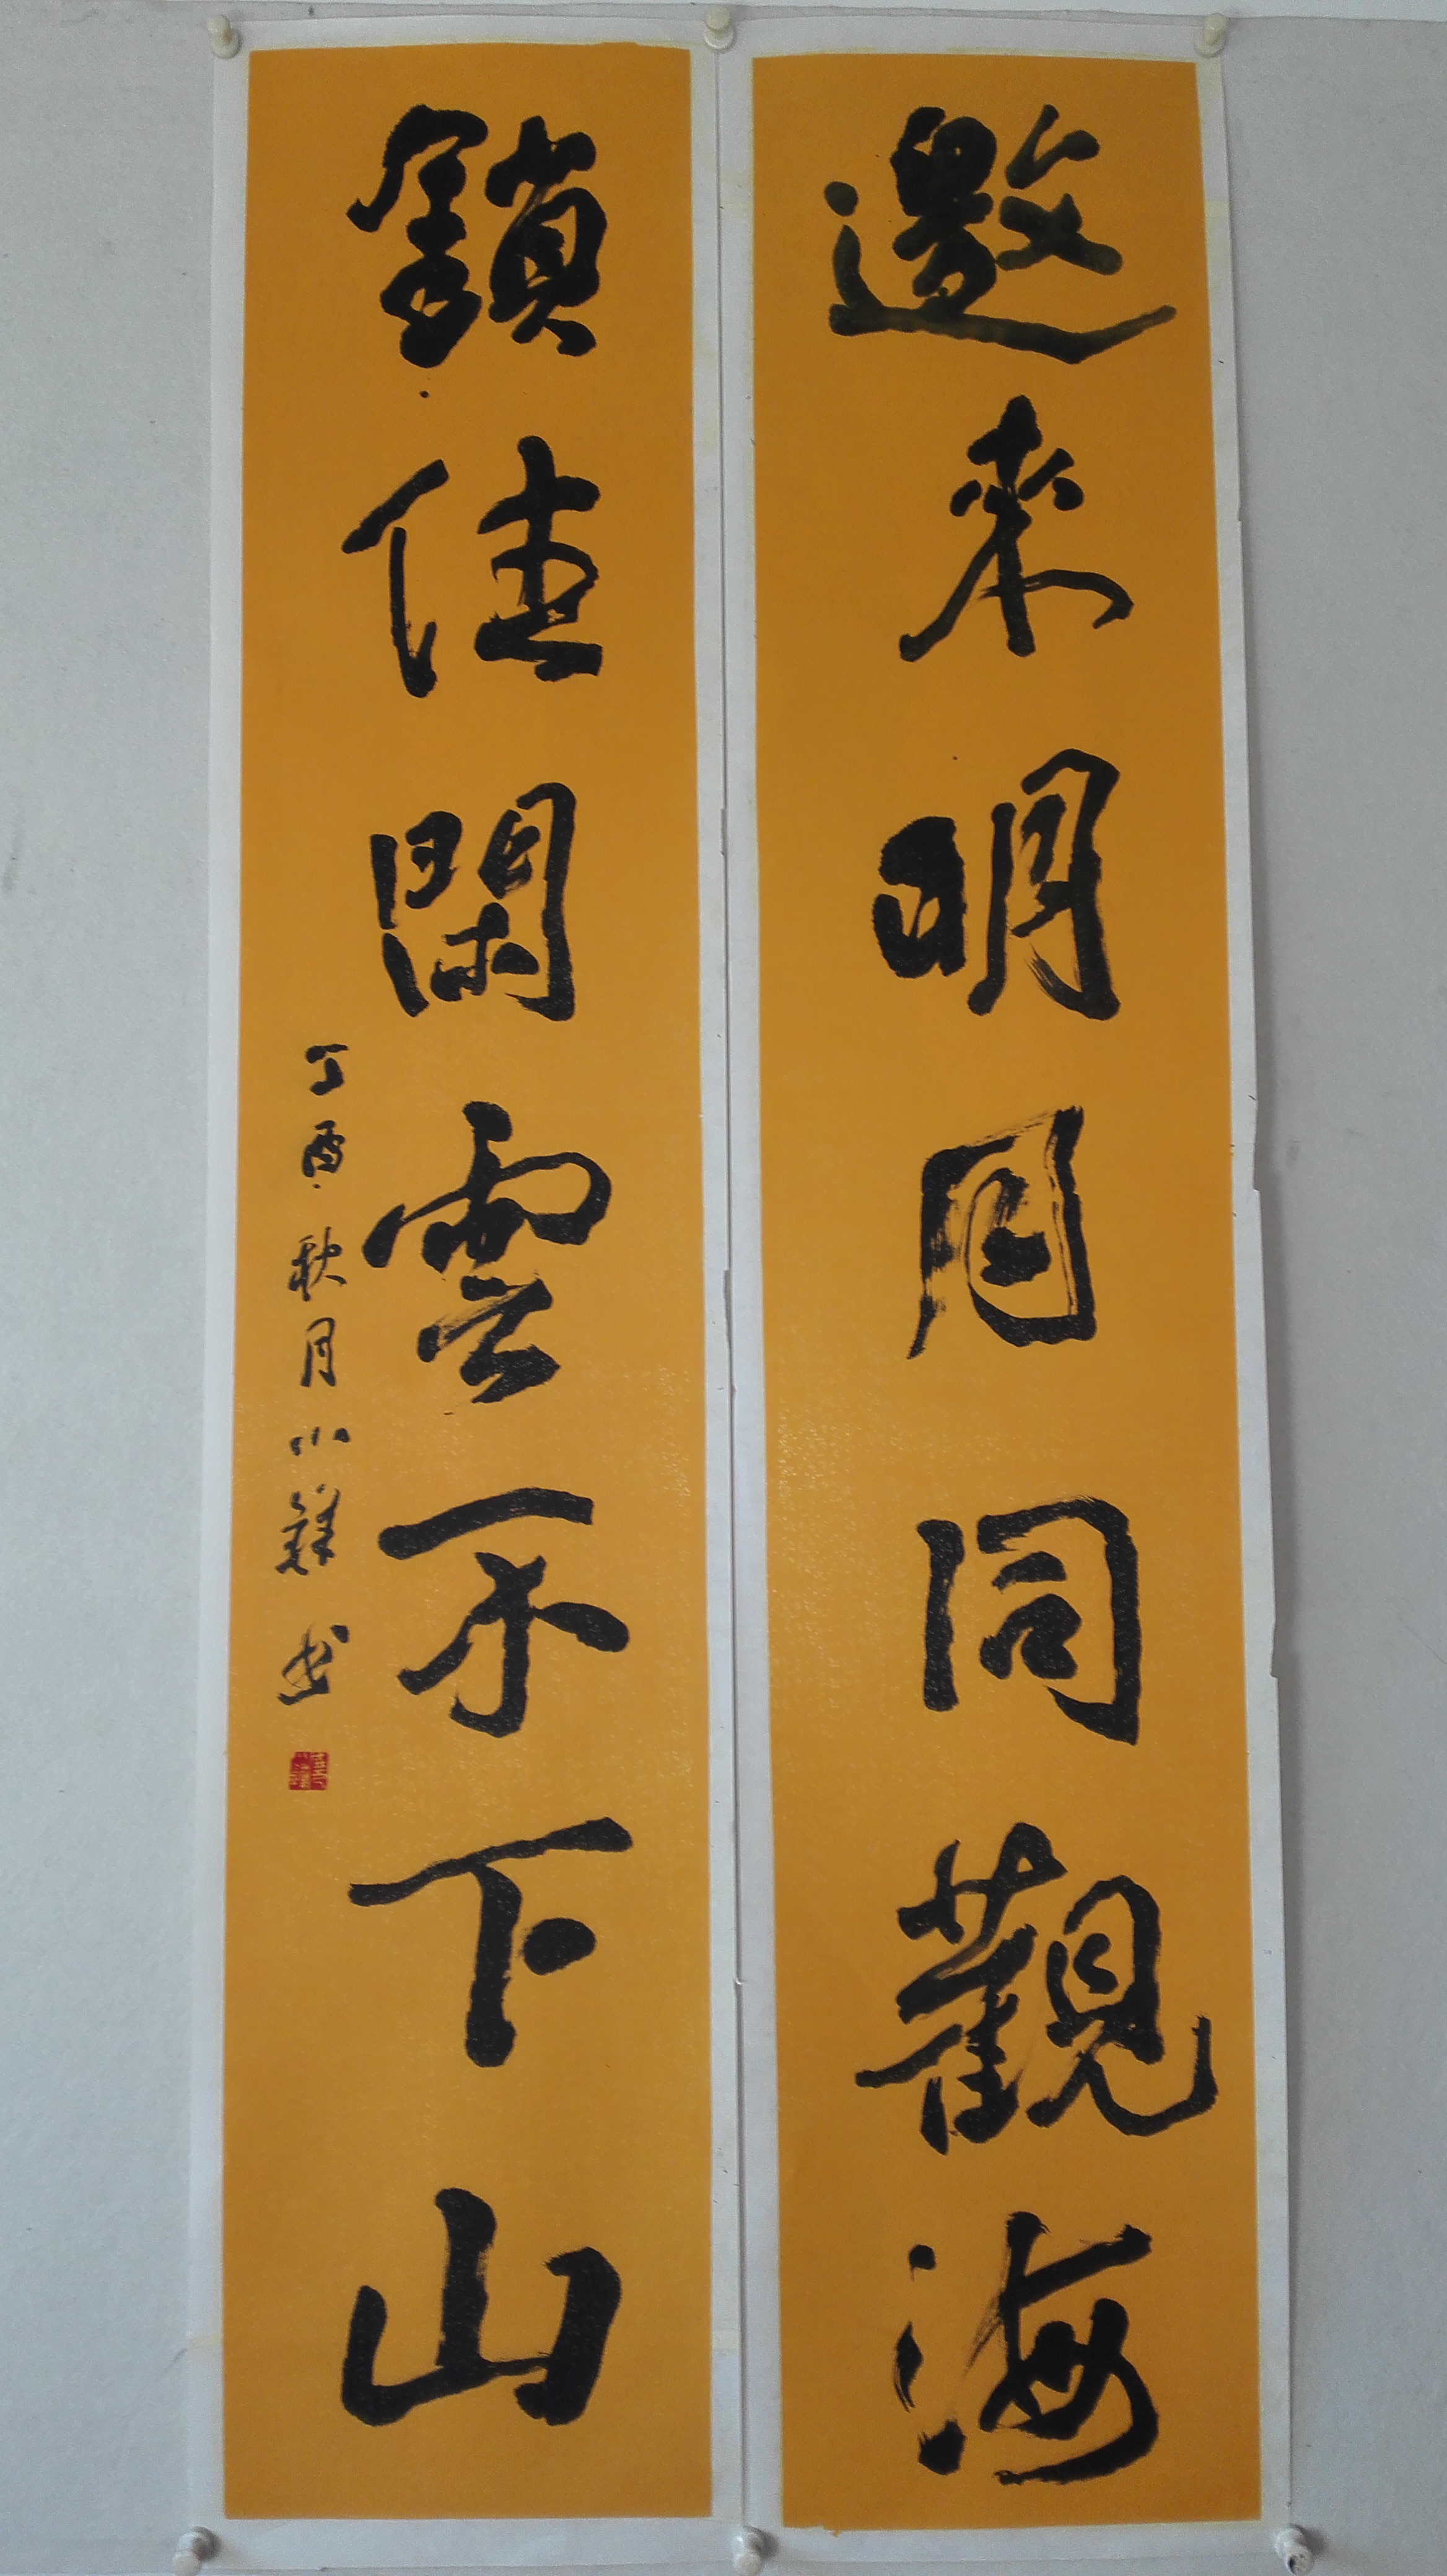 邀來明月同觀海
鎖住閑雲不下山
丁酉秋月小龝书